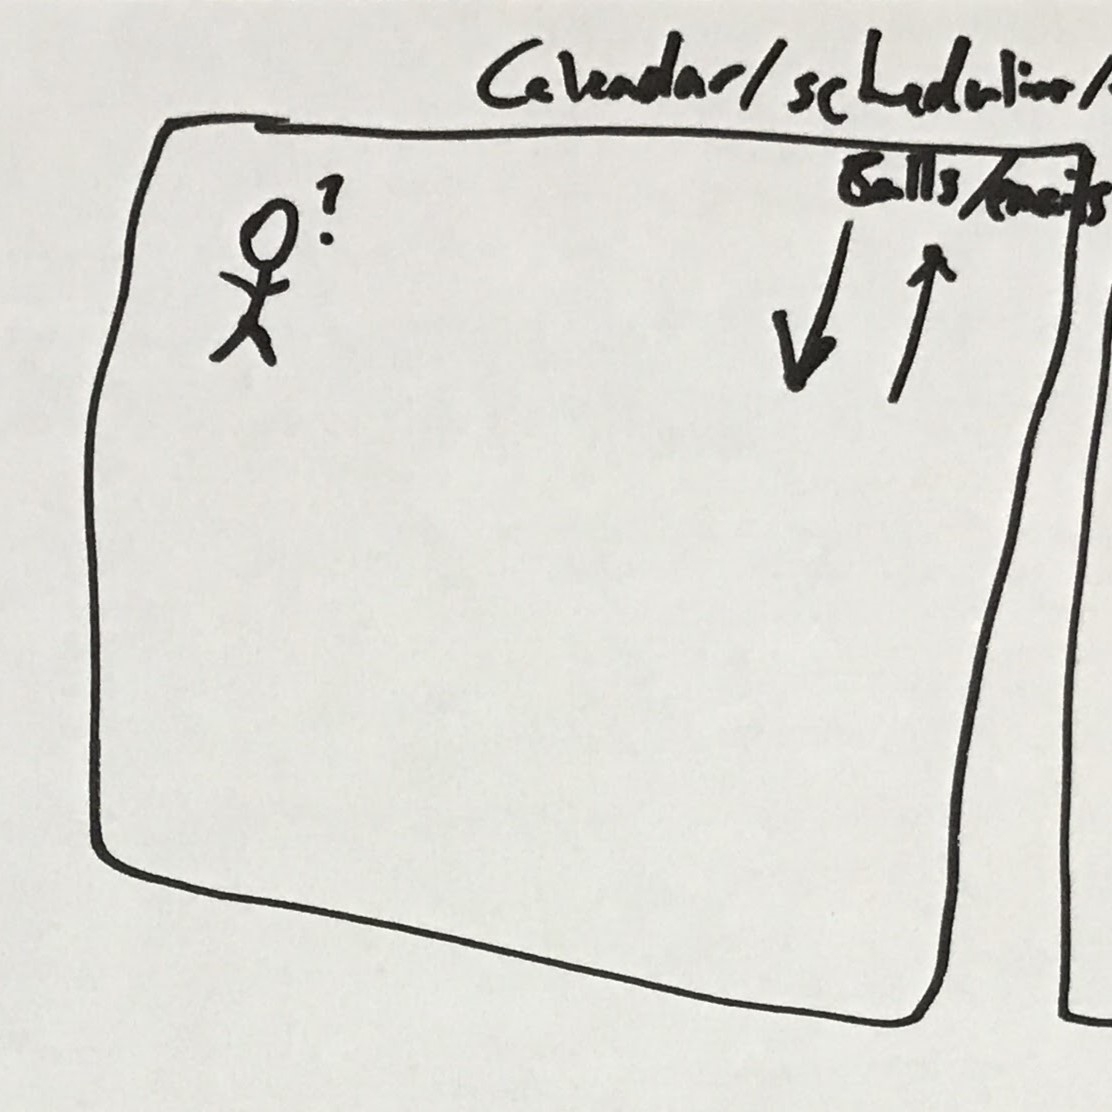 Calendar/scheduling/
?
Calls/emails